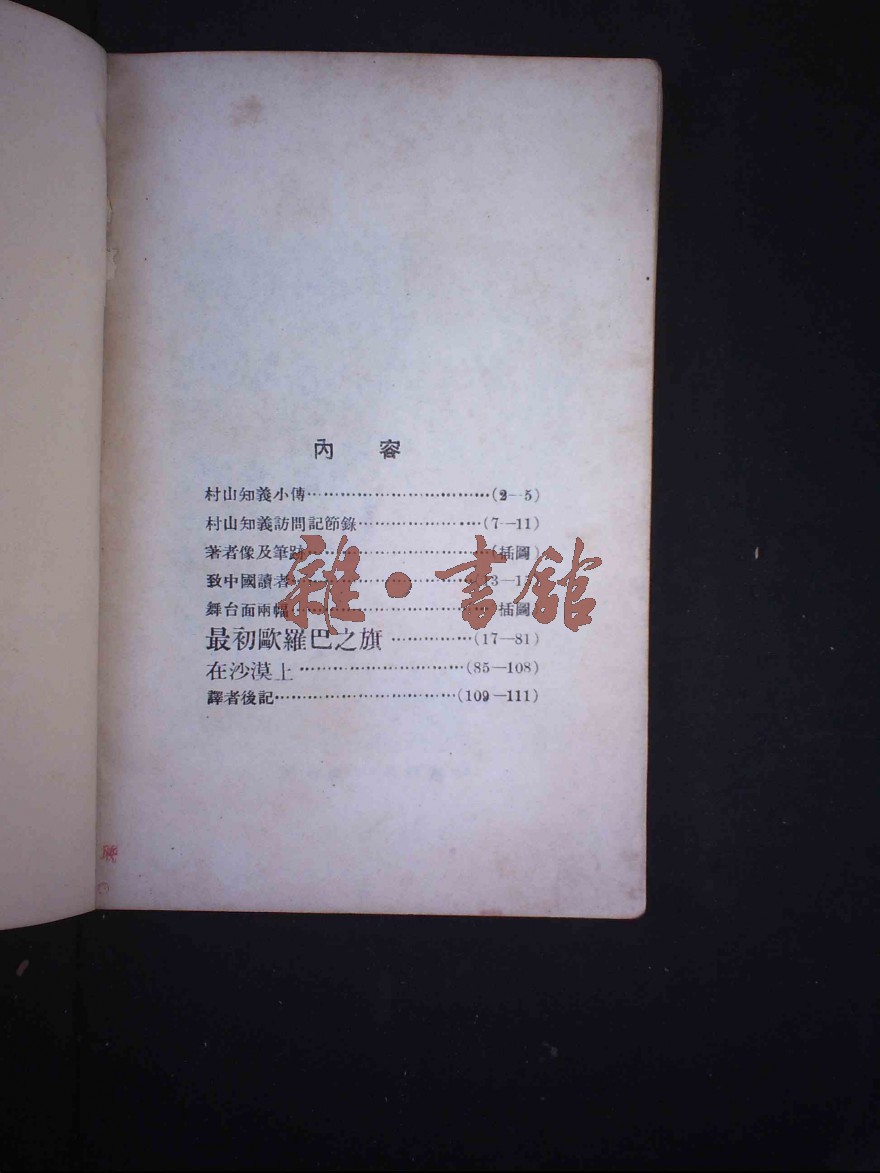 內　容
村山知義小傳…………………………(2—5)
村山知義訪問記節錄…………………(7—11)
著者像及筆跡…………………………(插圖)
致中國讀者……………………………(13—1
舞台面兩幅……………………………插圖)
最初歐羅巴之旗……………(17—81)
在沙漠上…………………………(85—108)
譯者後記……………………………(109—111)
雜·書館